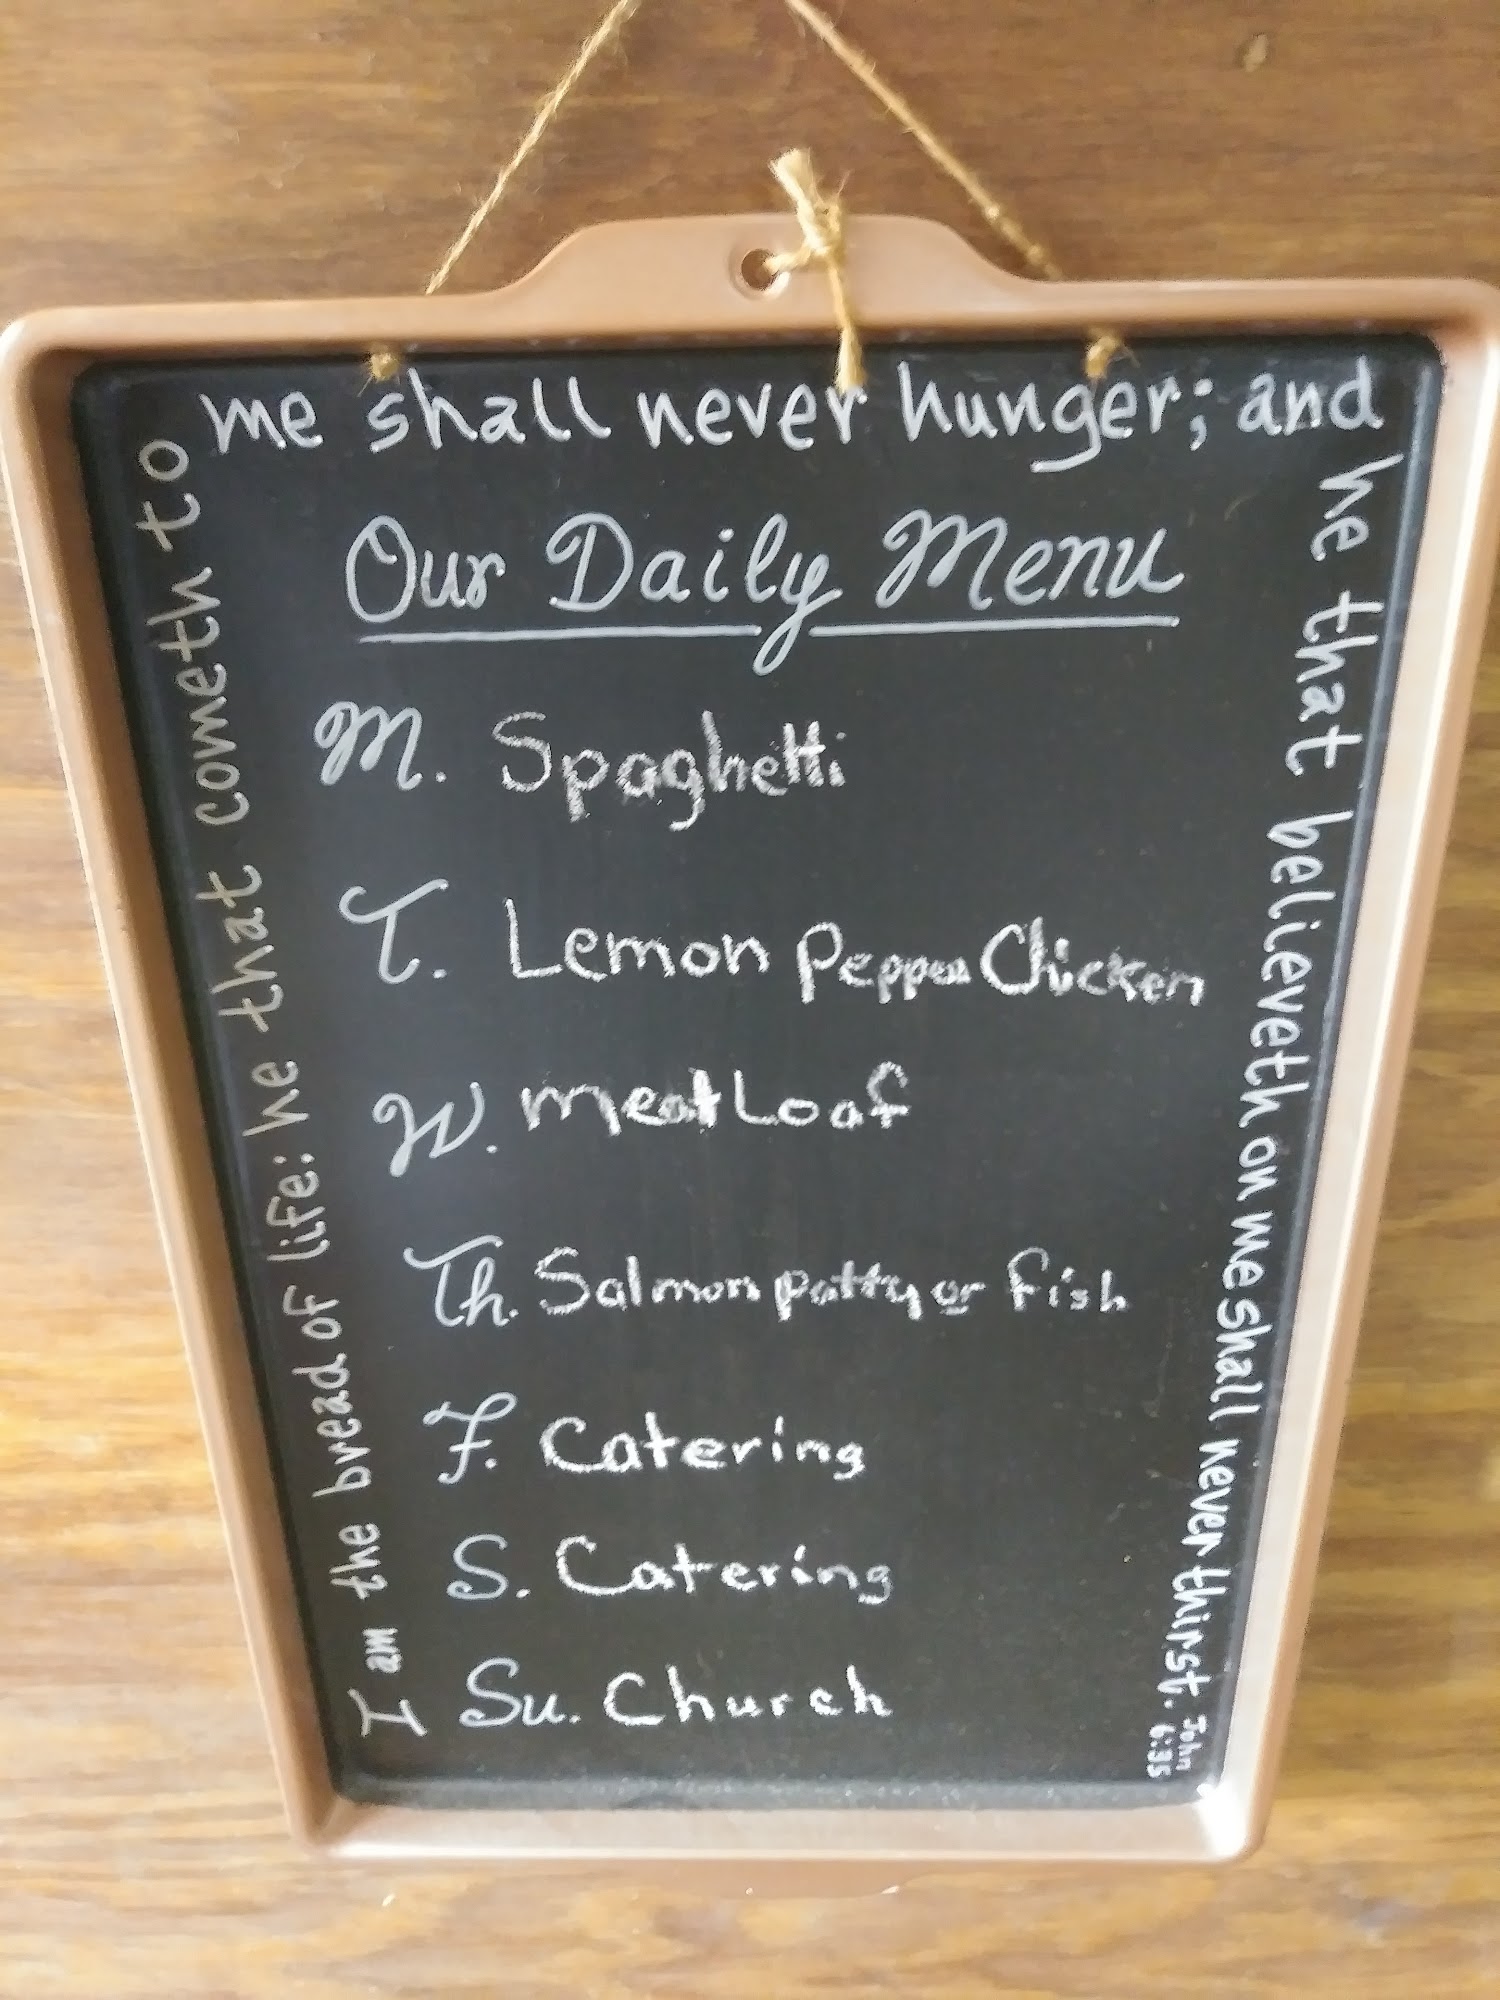 I am the bread of life: he that cometh to
me shall never hunger; and
he that believeth on me shall never thirst. John 6:35
Our Daily Menu
M. Spaghetti
T. Lemon Pepper Chicken
W. meat Loaf
Th. Salmon patty or fish
F. Catering
S. Catering
Su. Church